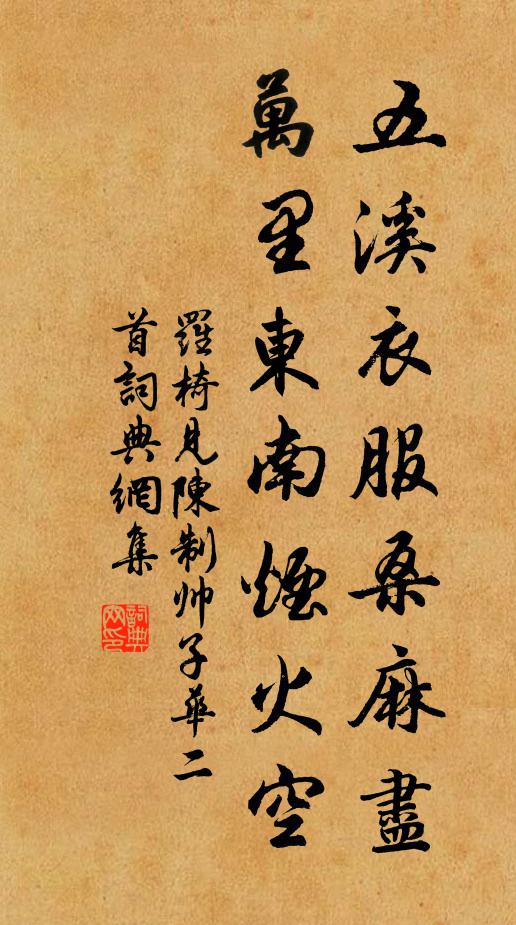 五溪衣服桑麻盡
萬里東南煙火空
羅椅見陳制帅子華二
首詞典網集
詞典
网印